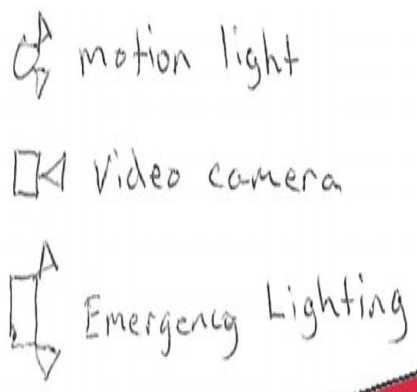 motion light
Video camera
Emergency Lighting